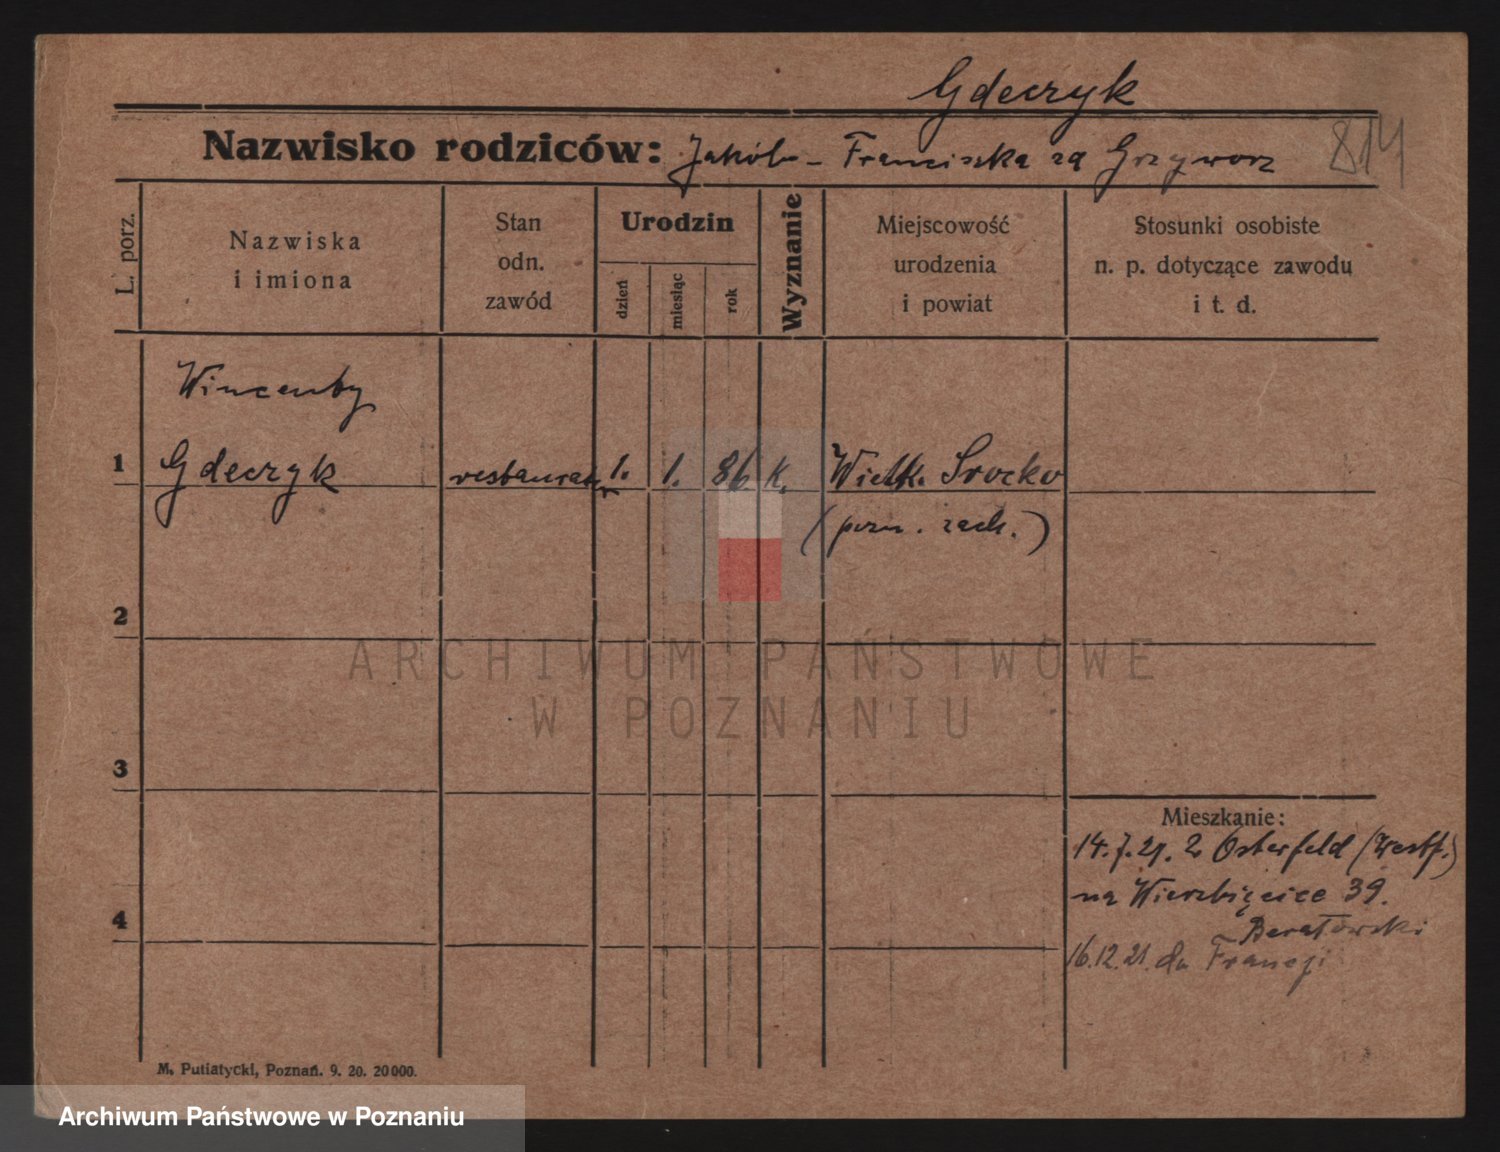 Gdeczyk
Nazwisko rodziców: Jakób - Franciszka zd Grzyworz 814
L. porz.
Nazwiska
i imiona
Stan
odn.
zawód
Urodzin
dzień
miesiąc
rok
Wyznanie
Miejscowość
urodzenia
i powiat
Stosunki osobiste
n. p. dotyczące zawodu
i t. d.
Wincenty
1 Gdeczyk restaurator 1. 1. 86 k. Wielk. Srocko
(pozn. zach.)
2
ARCHIWUM PAŃSTWOWE
W POZNANIU
3
Mieszkanie:
14.7.21. z Osterfeld (Westf.)
na Wierzbięcice 39.
4
16.12.21. do Francji
M. Putiatycki, Poznań. 9. 20. 20000.
Archiwum Państwowe w Poznaniu